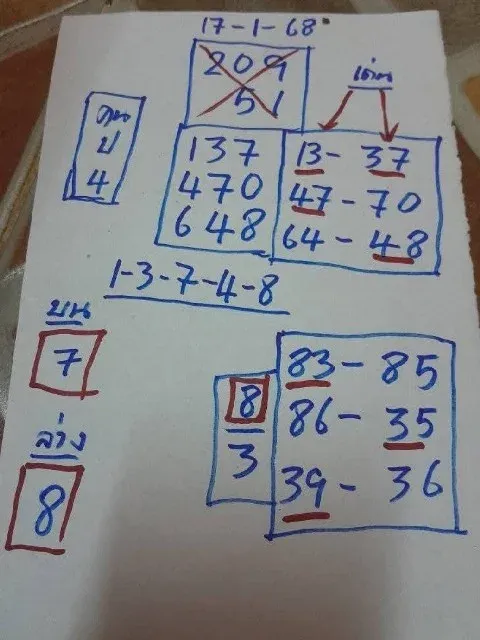 17-1-68
209
51
เด่น
บ
4
137
470
648
13-37
47-70
64-48
1-3-7-4-8
บน
7
ล่าง
8
8
3
83-85
86-35
39-36